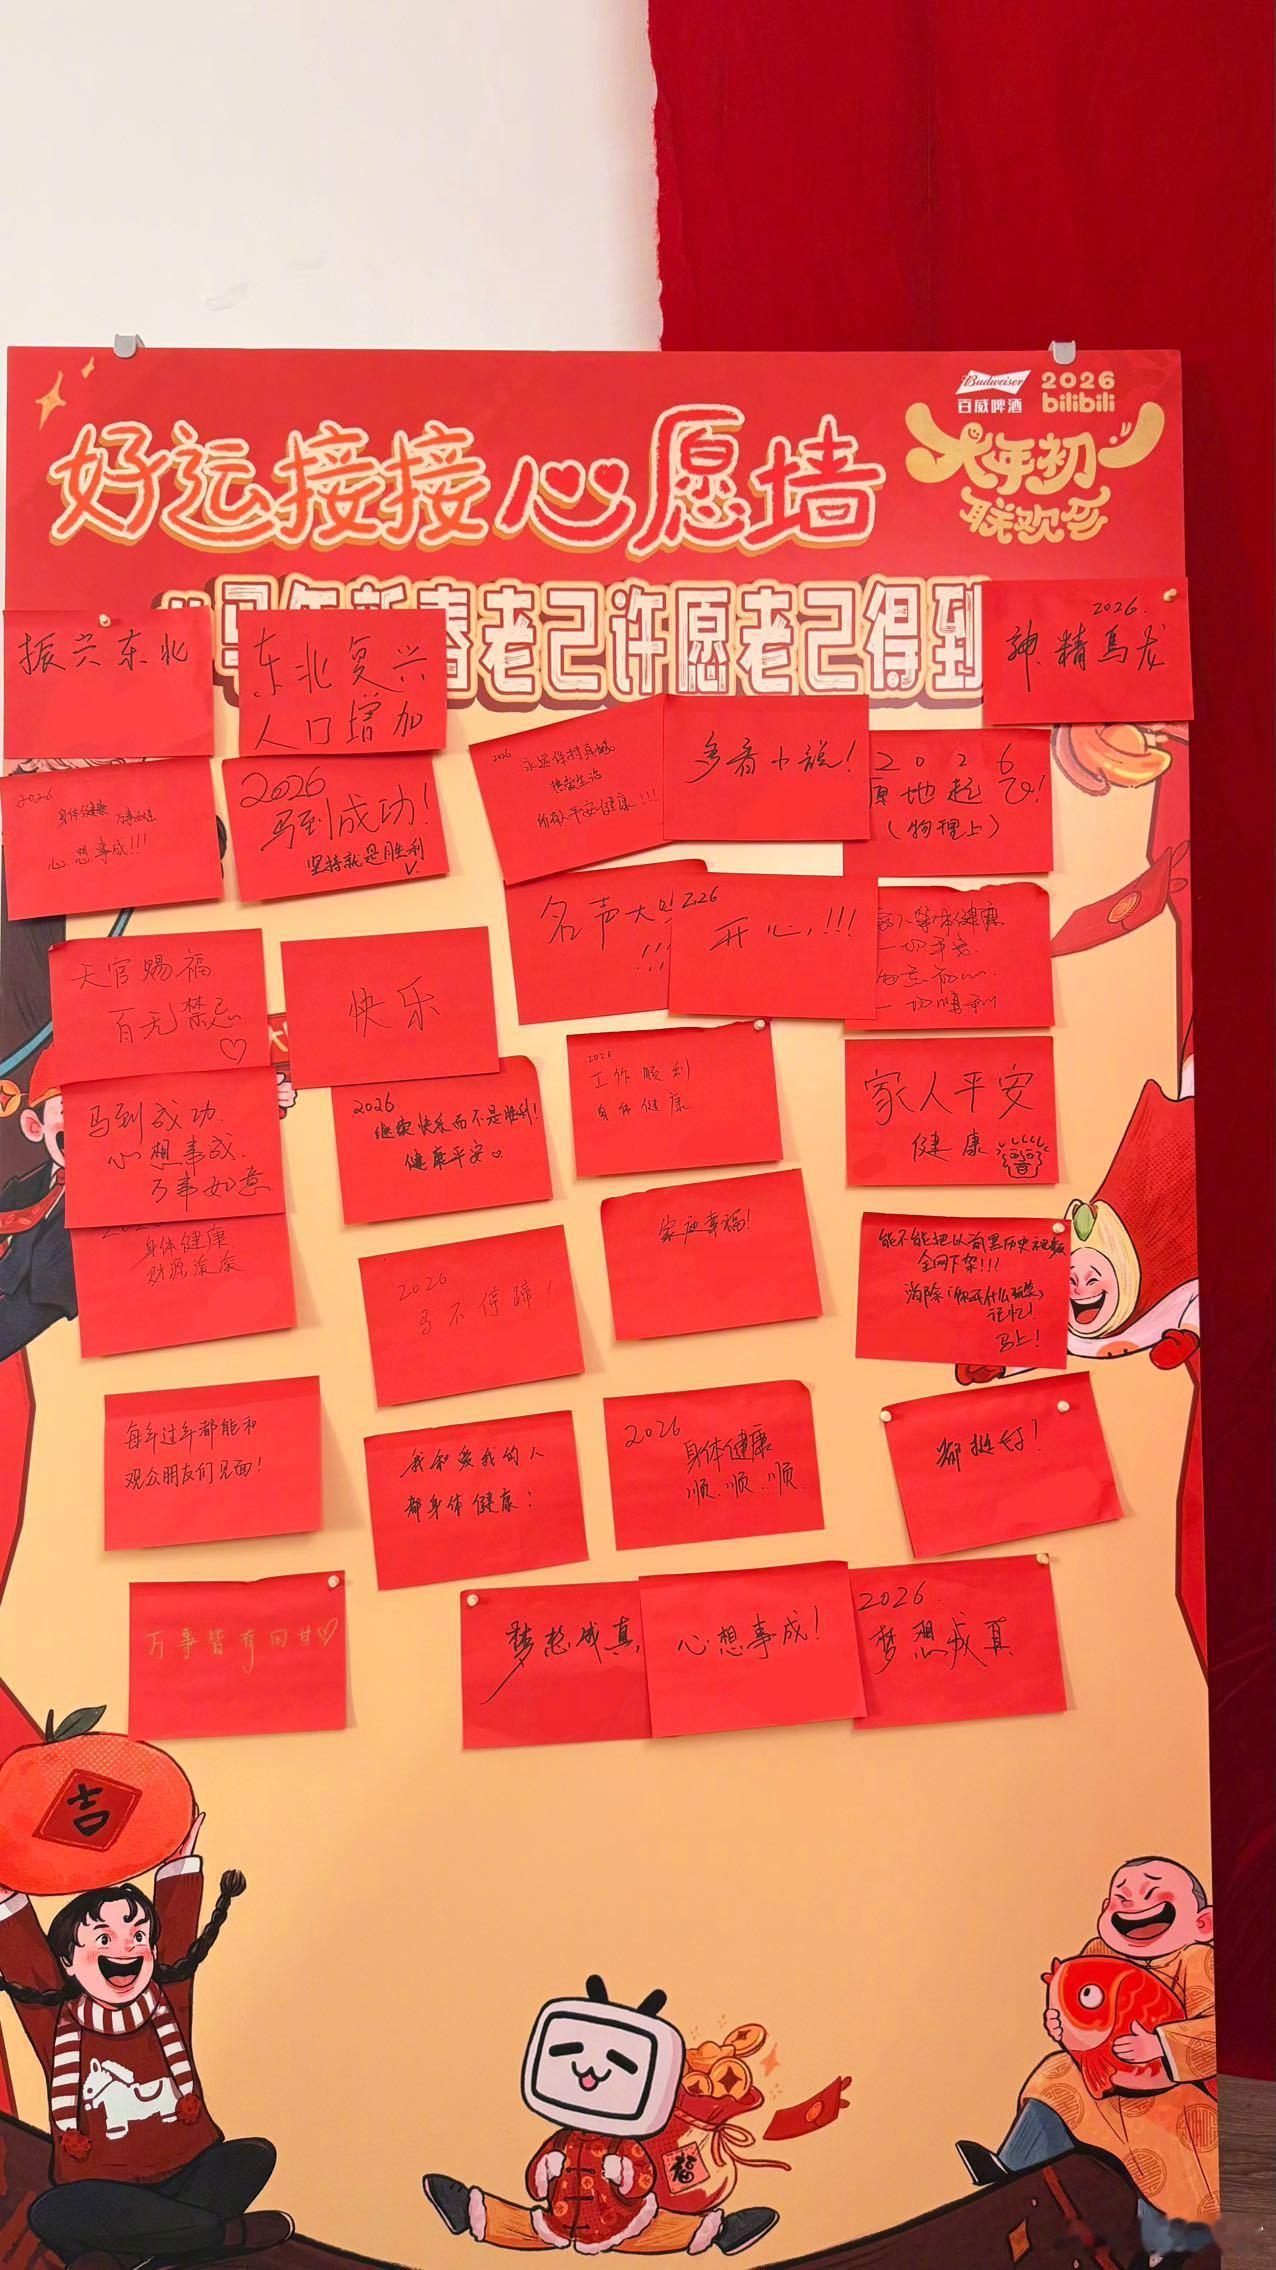 Budweiser
百威啤酒
2026
bilibili
大年初一
联欢会
好运接接心愿墙
新春老己许愿老己得到
振兴东北
东北复兴
人口增加
2026.
神精乌龙
2026
身体健康 万事如意
心想事成!!!
2026
马到成功!
坚持就是胜利
2026 永远保持真诚
热爱生活
所有人平安健康!!!
多看小说!
2026
原地起飞!
(物理上)
名声大
!!!
2026
开心!!!
家人身体健康
一切平安
一切顺利
天官赐福
百无禁忌♡
快乐
2026
工作顺利
身体健康
家人平安
健康
马到成功.
心想事成.
万事如意
2026
继续快乐而不是胜利!
健康平安♡
身体健康
财源滚滚
2026
马不停蹄!
家庭幸福!
能不能把以前黑历史视频
全网下架!!!
消除「你开什么玩笑」
记忆!
马上!
每年过年都能和
观众朋友们见面!
我和爱我的人
都身体健康:
2026
身体健康
顺.顺.顺.
都挺好!
万事皆有回甘♡
梦想成真,
心想事成!
2026.
梦想成真
吉
福